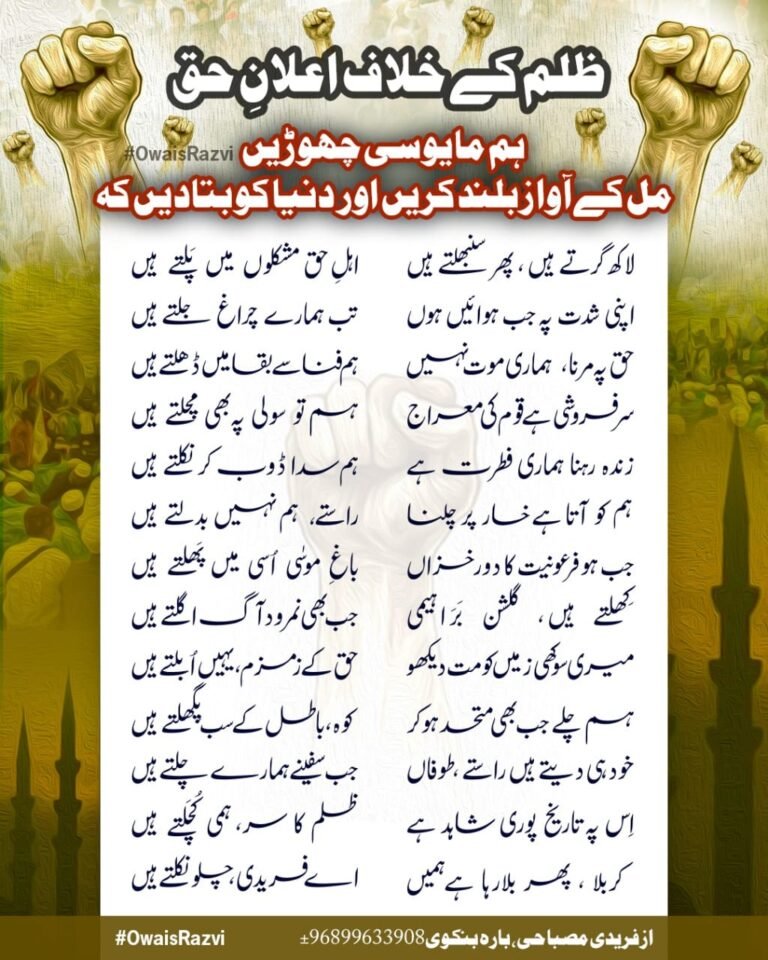 ظلم کے خلاف اعلانِ حق
#OwaisRazvi
ہم مایوسی چھوڑیں
مل کے آواز بلند کریں اور دنیا کو بتا دیں کہ
لاکھ گرتے ہیں ، پھر سنبھلتے ہیں اہلِ حق مشکلوں میں پَلتے ہیں
اپنی شدت پہ جب ہوائیں ہوں تب ہمارے چراغ جلتے ہیں
حق پہ مرنا، ہماری موت نہیں ہم فنا سے بقا میں ڈھلتے ہیں
سرفروشی ہے قوم کی معراج ہم تو سولی پہ بھی مچلتے ہیں
زندہ رہنا ہماری فطرت ہے ہم سدا ڈوب کر نکلتے ہیں
ہم کو آتا ہے خار پر چلنا راستے، ہم نہیں بدلتے ہیں
جب ہو فرعونیت کا دورِ خزاں باغِ موسٰی اُسی میں پَھلتے ہیں
کِھلتے ہیں ، گلشن بَراہیمی جب بھی نمرود آگ اگلتے ہیں
میری سوکھی زمیں کو مت دیکھو حق کے زمزم، یہیں اُبلتے ہیں
ہم چلے جب بھی متحد ہوکر کوہ، باطل کے سب پگھلتے ہیں
خود ہی دیتے ہیں راستے ،طوفاں جب سفینے ہمارے چلتے ہیں
اِس پہ تاریخ پوری شاہد ہے ظلم کا سر، ہمی کُچَلتے ہیں
کربلا ، پھر بلا رہا ہے ہمیں اے فریدی، چلو نکلتے ہیں
از فریدی مصباحی، بارہ بنکوی 96899633908±
#OwaisRazvi